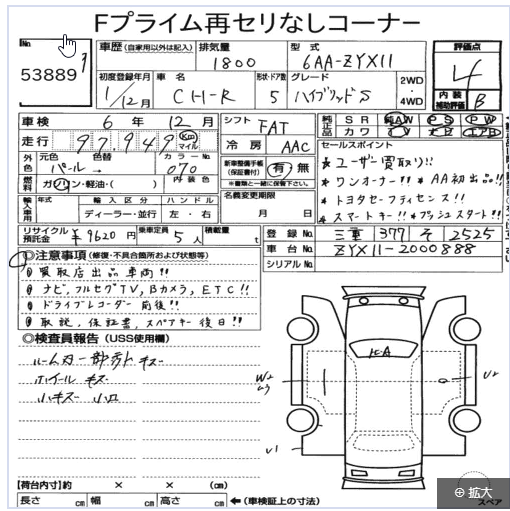 Fプライム再セリなしコーナー
No.
53889
車歴 (自家用以外は記入)
排気量
1800
型式
6AA-ZYX11
評価点
4
内装
補助評価
B
初度登録年月
1/12月
車名
C H-R
形状・ドア数
5
グレード
ハイブリッドS
2WD
・
4WD
車検
6 年 12 月
シフト
FAT
純正品
SR 純AW PS PW
カワ エアB
走行
97,949 Km
マイル
冷房
AAC
外色
元色
パール
色替
→
カラーNo.
070
燃料
ガソリン・軽油・( )
内装色
新車整備手帳
(保証書付)
有・無
※書類と一緒に保管下さい。
セールスポイント
★ユーザー買取り!!
★ワンオーナー!! ★AA初出品!!
★トヨタセーフティセンス!!
★スマートキー!! ★プッシュスタート!!
輸入車用
年式
輸入区分
ディーラー・並行
ハンドル
左・右
名義変更期限
月 日
リサイクル
預託金
¥9620 円
乗車定員
5 人
積載量
t
登録No.
三重 377 そ 2525
車台No.
ZYX11-2000888
シリアルNo.
◎注意事項 (修復・不具合箇所および状態等)
買取店出品車両!!
ナビ,フルセグTV,Bカメラ,ETC!!
ドライブレコーダー前後!!
取説,保証書,スペアキー後日!!
◎検査員報告 (USS使用欄)
キズ
ホイールキズ
小キズ 小凹
W2
U2
U1
【荷台内寸】約 × × (cm)
長さ cm 幅 cm 高さ cm ←(車検証上の寸法)
スペア
⊕ 拡大